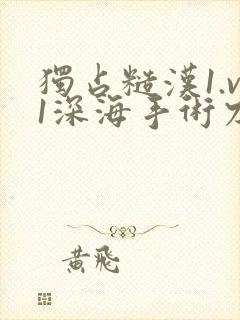 獨占糙漢1.v
1深海手術刀
黃飛